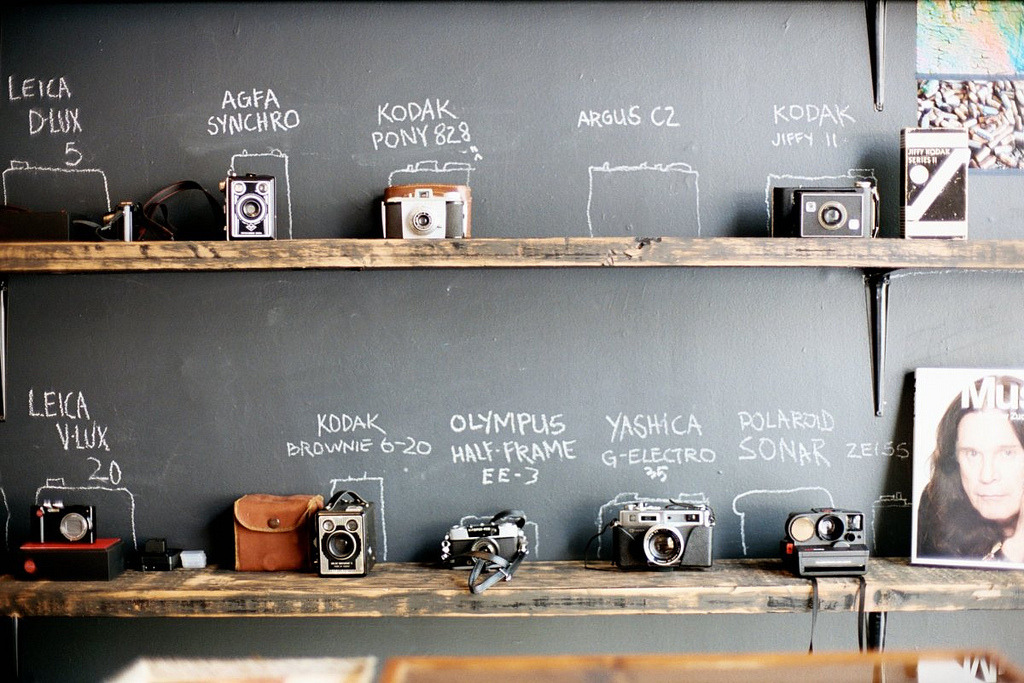 LEICA
D-LUX
5
AGFA
SYNCHRO
KODAK
PONY 828
ARGUS C2
KODAK
JIFFY 11
JIFFY KODAK
SERIES II
LEICA
V-LUX
20
KODAK
BROWNIE 6-20
OLYMPUS
HALF-FRAME
EE-3
YASHICA
G-ELECTRO
35
POLAROID
SONAR
ZEISS
Mus